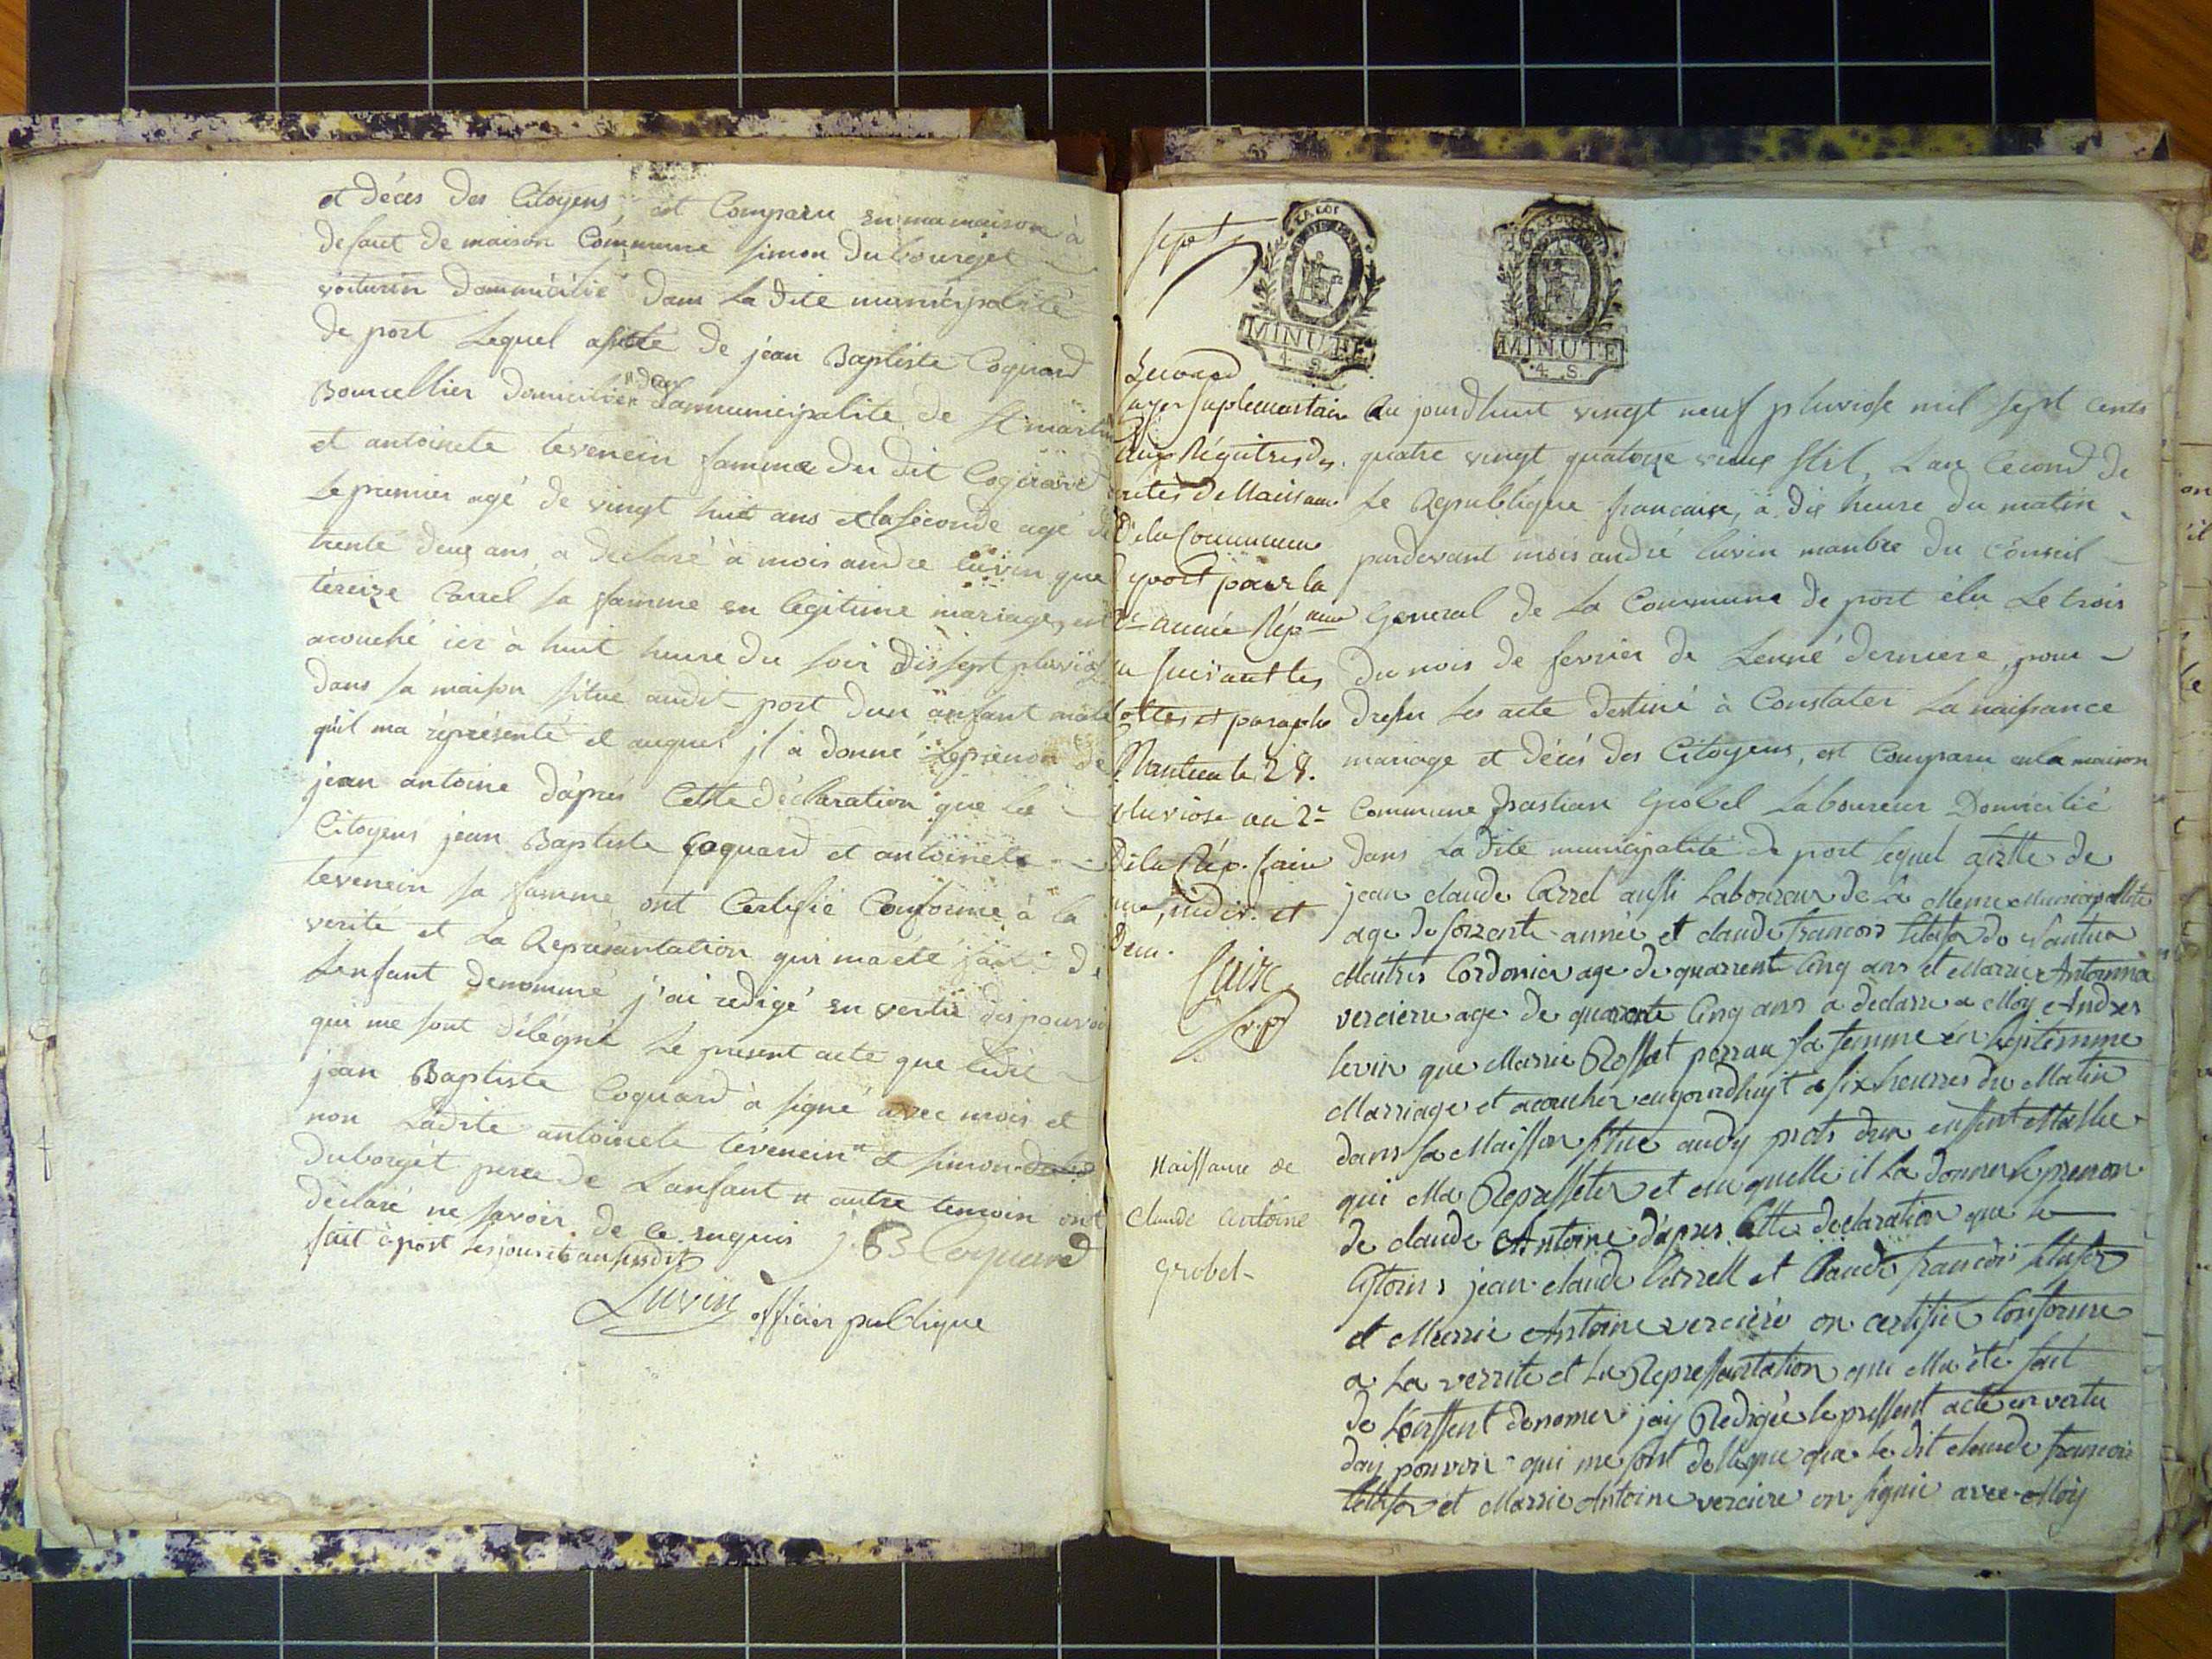 et décès des Citoyens, est Comparu en ma maison à
defaut de maison Commune simon Dubourget
voiturin dommicilié dans la dite municipalité
de port Lequel assisté de jean Baptiste Coquard
Bourcellier domicilié dans la municipalite de st martin
et antoinete tevenein famme du dit Coquard
Le premier agé de vingt huit ans et la seconde agé de
trente deux ans, a déclaré à mois andre luvin que
téreize Carrel sa famme en légitime mariage, est
acouché ier à huit heure du soir dis sept pluviose
dans sa maison situé audit port dun anfant male
quil ma réprésenté et auquel jl à donné Leprenon de
jean antoine dàprés Cette déclaration que les
Citoyens jean Baptiste Coquard et antoinete
tevenein sa famme ont Certifié Conforme à la
verité et La Représantation qui ma été fait de
Lenfant denommé j'ai redigé en vertu des pouvoir
qui me sont délégué Le present acte que ledit
jean Baptiste Coquard à signé avec mois et
non Ladite antoinete tévenein et simon
duborgét pere de Lanfant autre temoin ont
déclaré ne savoir de ce enquis J. B Coquard
fait à port les jours et an susdit
Luvin officier publique
sept
LA LOI
MINUTE
4. S.
MINUTE
4. S.
Second
Cayer suplementaire
aux Régistres des
actes de Naissance
De la Commune
de port pour la
2e année Répne
suivant les
cottes et paraphe
Nantua le 28.
pluviose an 2e
De la Rép. faire
une, indiv. et
Dem.
Naissance de
Claude Antoine
Grobel-
Au jourdhuit vingt neuf pluviose mil sept cents
quatre vingt quatorze vieux stil, Lan Cecond de
Le Republique francaise, à dix heure du matin
pardevant mois andré luvin manbre du Conseil
General de La Commune de port élu Le trois
du mois de fevrier de Lenné derniere, pour
dresser Les acte destiné à Constater La naissance
mariage et décés des Citoyens, est Comparu en la maison
Commune Grobel Laboureur Domicilié
dans La dite municipalité de port lequel assisté de
jean claude Carrel aussi Laboureur de La Meme Municipallité
age de soizante année et claude francois de Nantua
Maitres Cordonier age de quarrent Cinq ans et Marrie Antoinia
verciere age de quarente Cinq ans a declarre a Moy Andres
levin que Marrie Rosset perran sa femme en leptimme
Marriage et acoucher aujourdhuy a six heurres du Matin
dans sa Maisson situe audy port dun enfent Malle
qui Ma Represseter et auquelle il La donner le prenon
de claude Antoine dàpres Cette declaration que le
Citoiens jean claude Carrell et Claude francois
et Marrie Antoine verciere on certifier Conforme
a La verrite et La Repressantation qui Ma été fait
de Lenffent denomer jay Redigée le pressent acte en vertu
day pouvoir qui me sont dellegue que le dit claude francois
et Marrie Antoine verciere on signie avec Moy